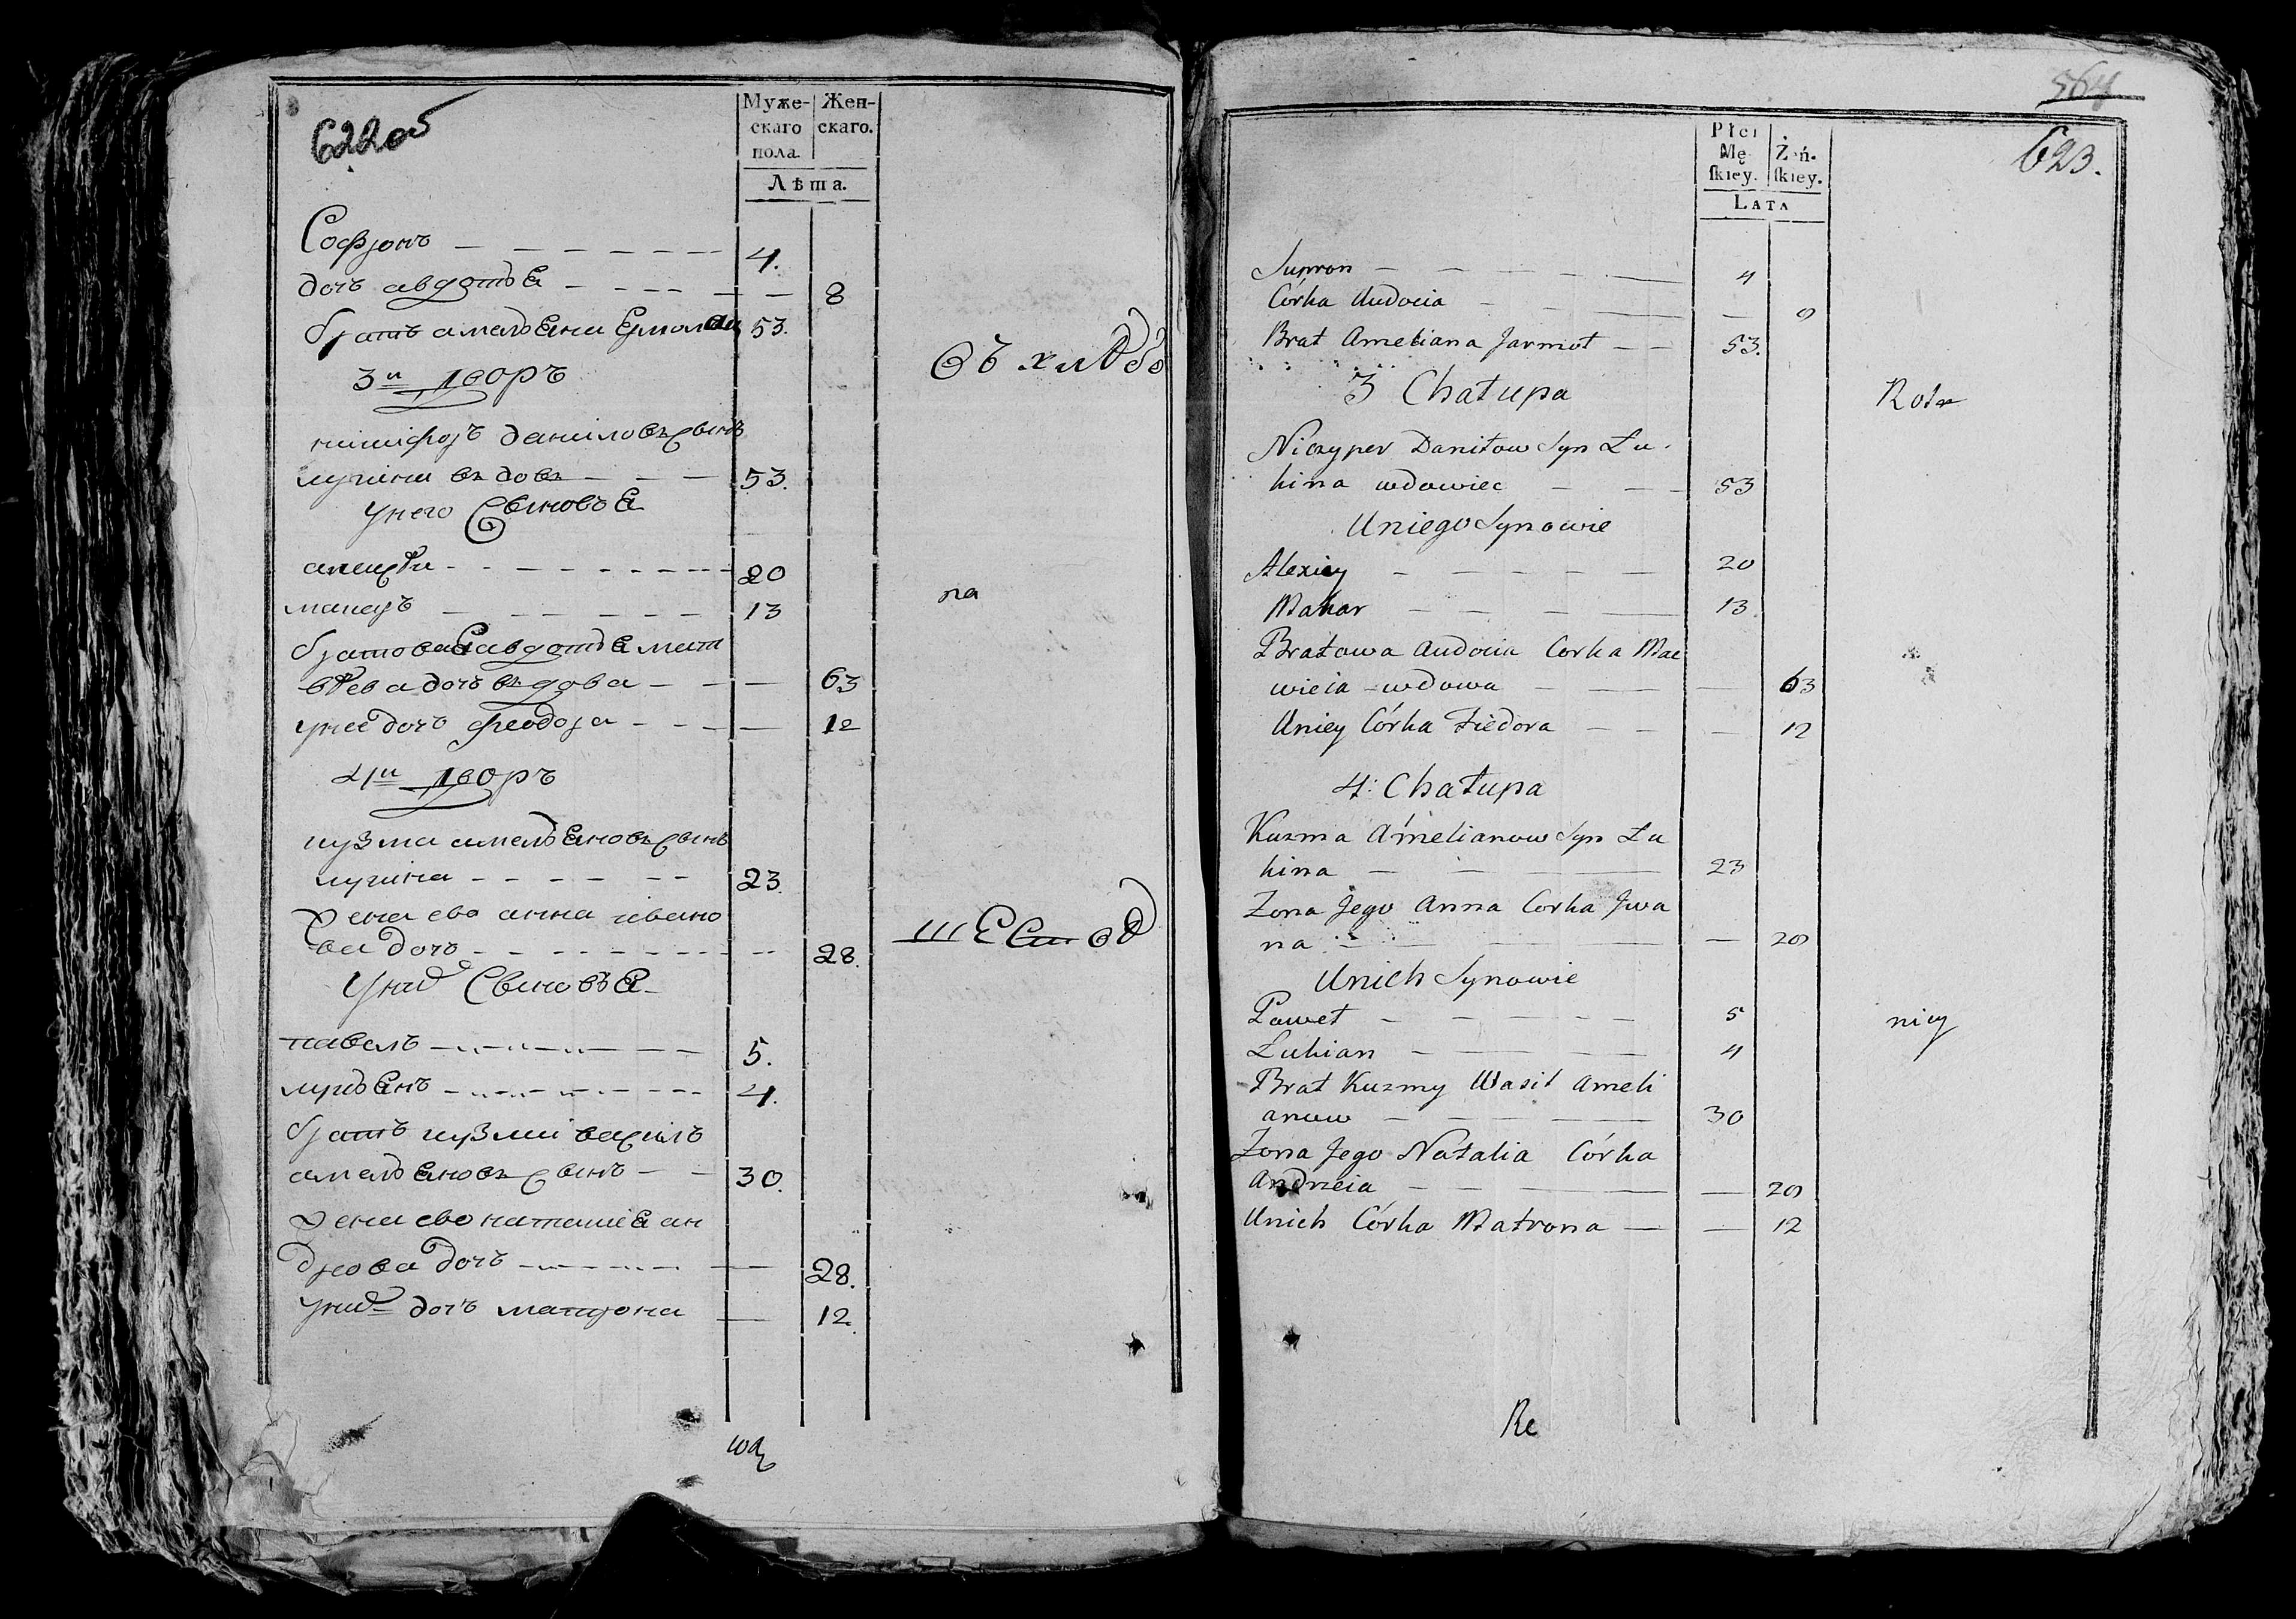 622об
Муже-
скаго
пола.
Жен-
скаго.
Лѣта.
Софронъ — 4.
дочь авдотья — 8
братъ амельяна Ермолай 53.
3й дворъ
ничифоръ даниловъ сынъ
лукина въдовъ — 53.
унего сыновья
алексѣй — 20
макаръ — 13
братовая авдотья мат
вѣева дочь въдова — 63
унее дочь феодора — 12
4й дворъ
кузма амельяновъ сынъ
лукина — 23.
жена ево анна івано
ва дочь — 28.
уних сыновья
павелъ — 5.
лукьянъ — 4.
братъ кузми василъ
амельяновъ сынъ — 30.
жена ево наталия ан
дреева дочь — 28.
уних дочь матрона — 12.
на
564
623.
Płci
Mę-
ſkiey.
Żeń-
ſkiey.
Lata
Supron — 4
Córka Audocia — 8
Brat Ameliana Jarmoł — 53.
3 Chałupa
Rol
Niczyper Daniłow Syn Łu-
kina wdowiec — 53
Uniego Synowie
Alexiey — 20
Makar — 13
Bratowa Audocia Corka Mac
wieia wdowa — 63
Uniey Córka Fiedora — 12
4. Chałupa
Kuzma Amelianow Syn Łu
kina — 23
Zona Jego Anna Corka Jwa
na — 28
Unich Synowie
Paweł — 5
nicy
Łukian — 4
Brat Kuzmy Wasil Ameli
anow — 30
Zona Jego Natalia Córka
Andrzeia — 28
Unich Córka Matrona — 12
Re